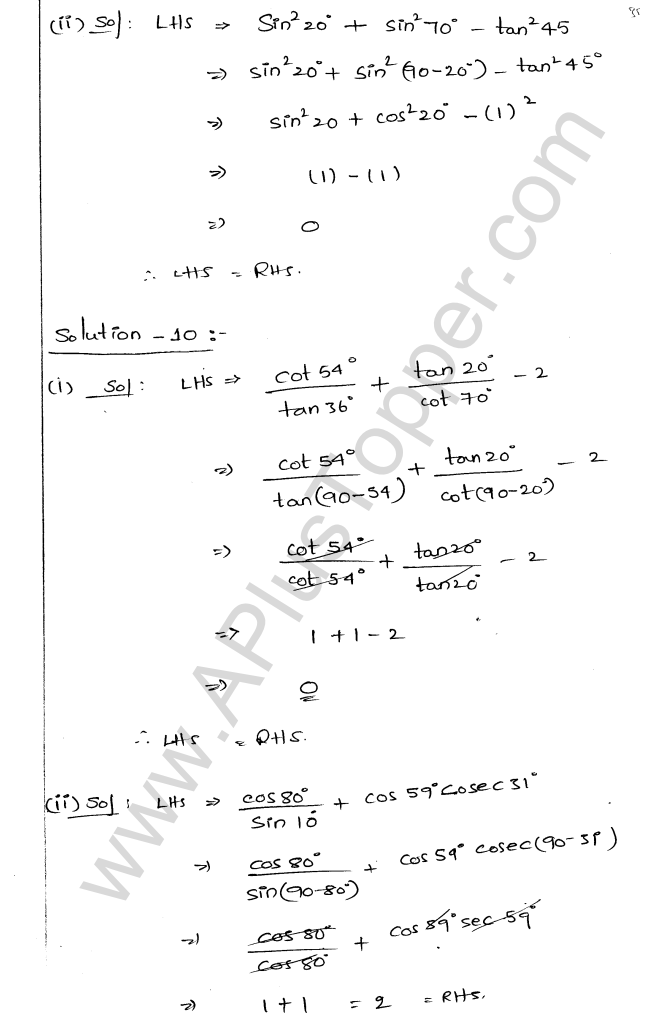 85
(ii) Sol: LHS ⇒ Sin²20° + sin²70° - tan²45
⇒ sin²20° + sin²(90-20°) - tan²45°
⇒ sin²20 + cos²20° - (1)²
⇒ (1) - (1)
⇒ 0
∴ LHS = RHS.
Solution - 10 :-
(i) Sol: LHS ⇒ cot 54°/tan 36° + tan 20°/cot 70° - 2
⇒ cot 54°/tan(90-54) + tan 20°/cot(90-20°) - 2
⇒ cot 54°/cot 54° + tan20°/tan20° - 2
⇒ 1 + 1 - 2
⇒ 0
∴ LHS = RHS.
(ii) Sol: LHS ⇒ cos 80°/Sin 10° + cos 59° Cosec 31°
⇒ cos 80°/sin(90-80°) + cos 59° cosec(90-31°)
⇒ cos 80°/cos 80° + cos 89° sec 59°
⇒ 1 + 1 = 2 = RHS.
www.APlusTopper.com